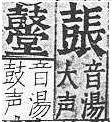 音湯
大声
鼞
音湯
鼓声